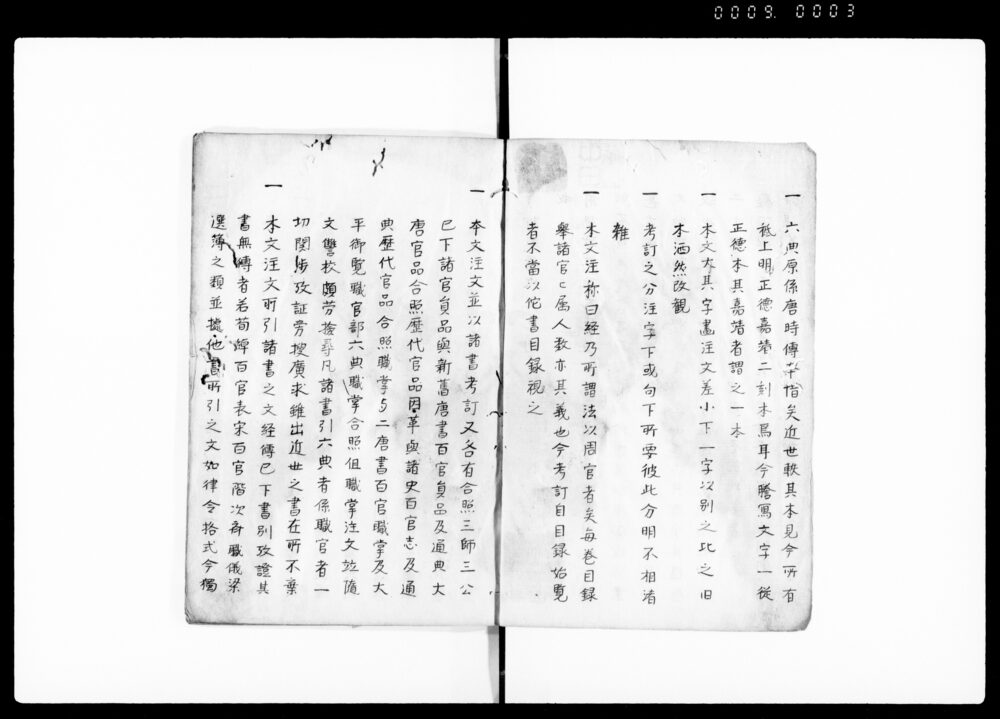 0009. 0003
一 六典原係唐時傳 希矣近世軼其本見今所有
秖上明正德嘉靖二刻本焉耳今謄寫文字一從
正德本其嘉靖者謂之一本
一 本文大其字畫注文差小下一字以別之比之旧
本洒然改觀
一 考訂之分注字下或句下所要彼此分明不相淆
雜
一 本文注称曰経乃所謂法以周官者矣每卷目録
舉諸官々属人数亦其義也今考訂自目録始覧
者不當以佗書目録視之
一 本文注文並以諸書考訂又各有合照三師三公
已下諸官員品與新舊唐書百官員品及通典大
唐官品合照歷代官品因革與諸史百官志及通
典歷代官品合照職掌与二唐書百官職掌及大
平御覧職官部六典職掌合照但職掌注文竝隨
文讐校頗劳捡尋凡諸書引六典者係職官者一
切関涉攷証旁搜廣求雖出近世之書在所不棄
一 本文注文所引諸書之文経傳已下書別攷證其
書無傳者若荀綽百官表宋百官階次齊職儀梁
選簿之類並據他書所引之文如律令格式今獨